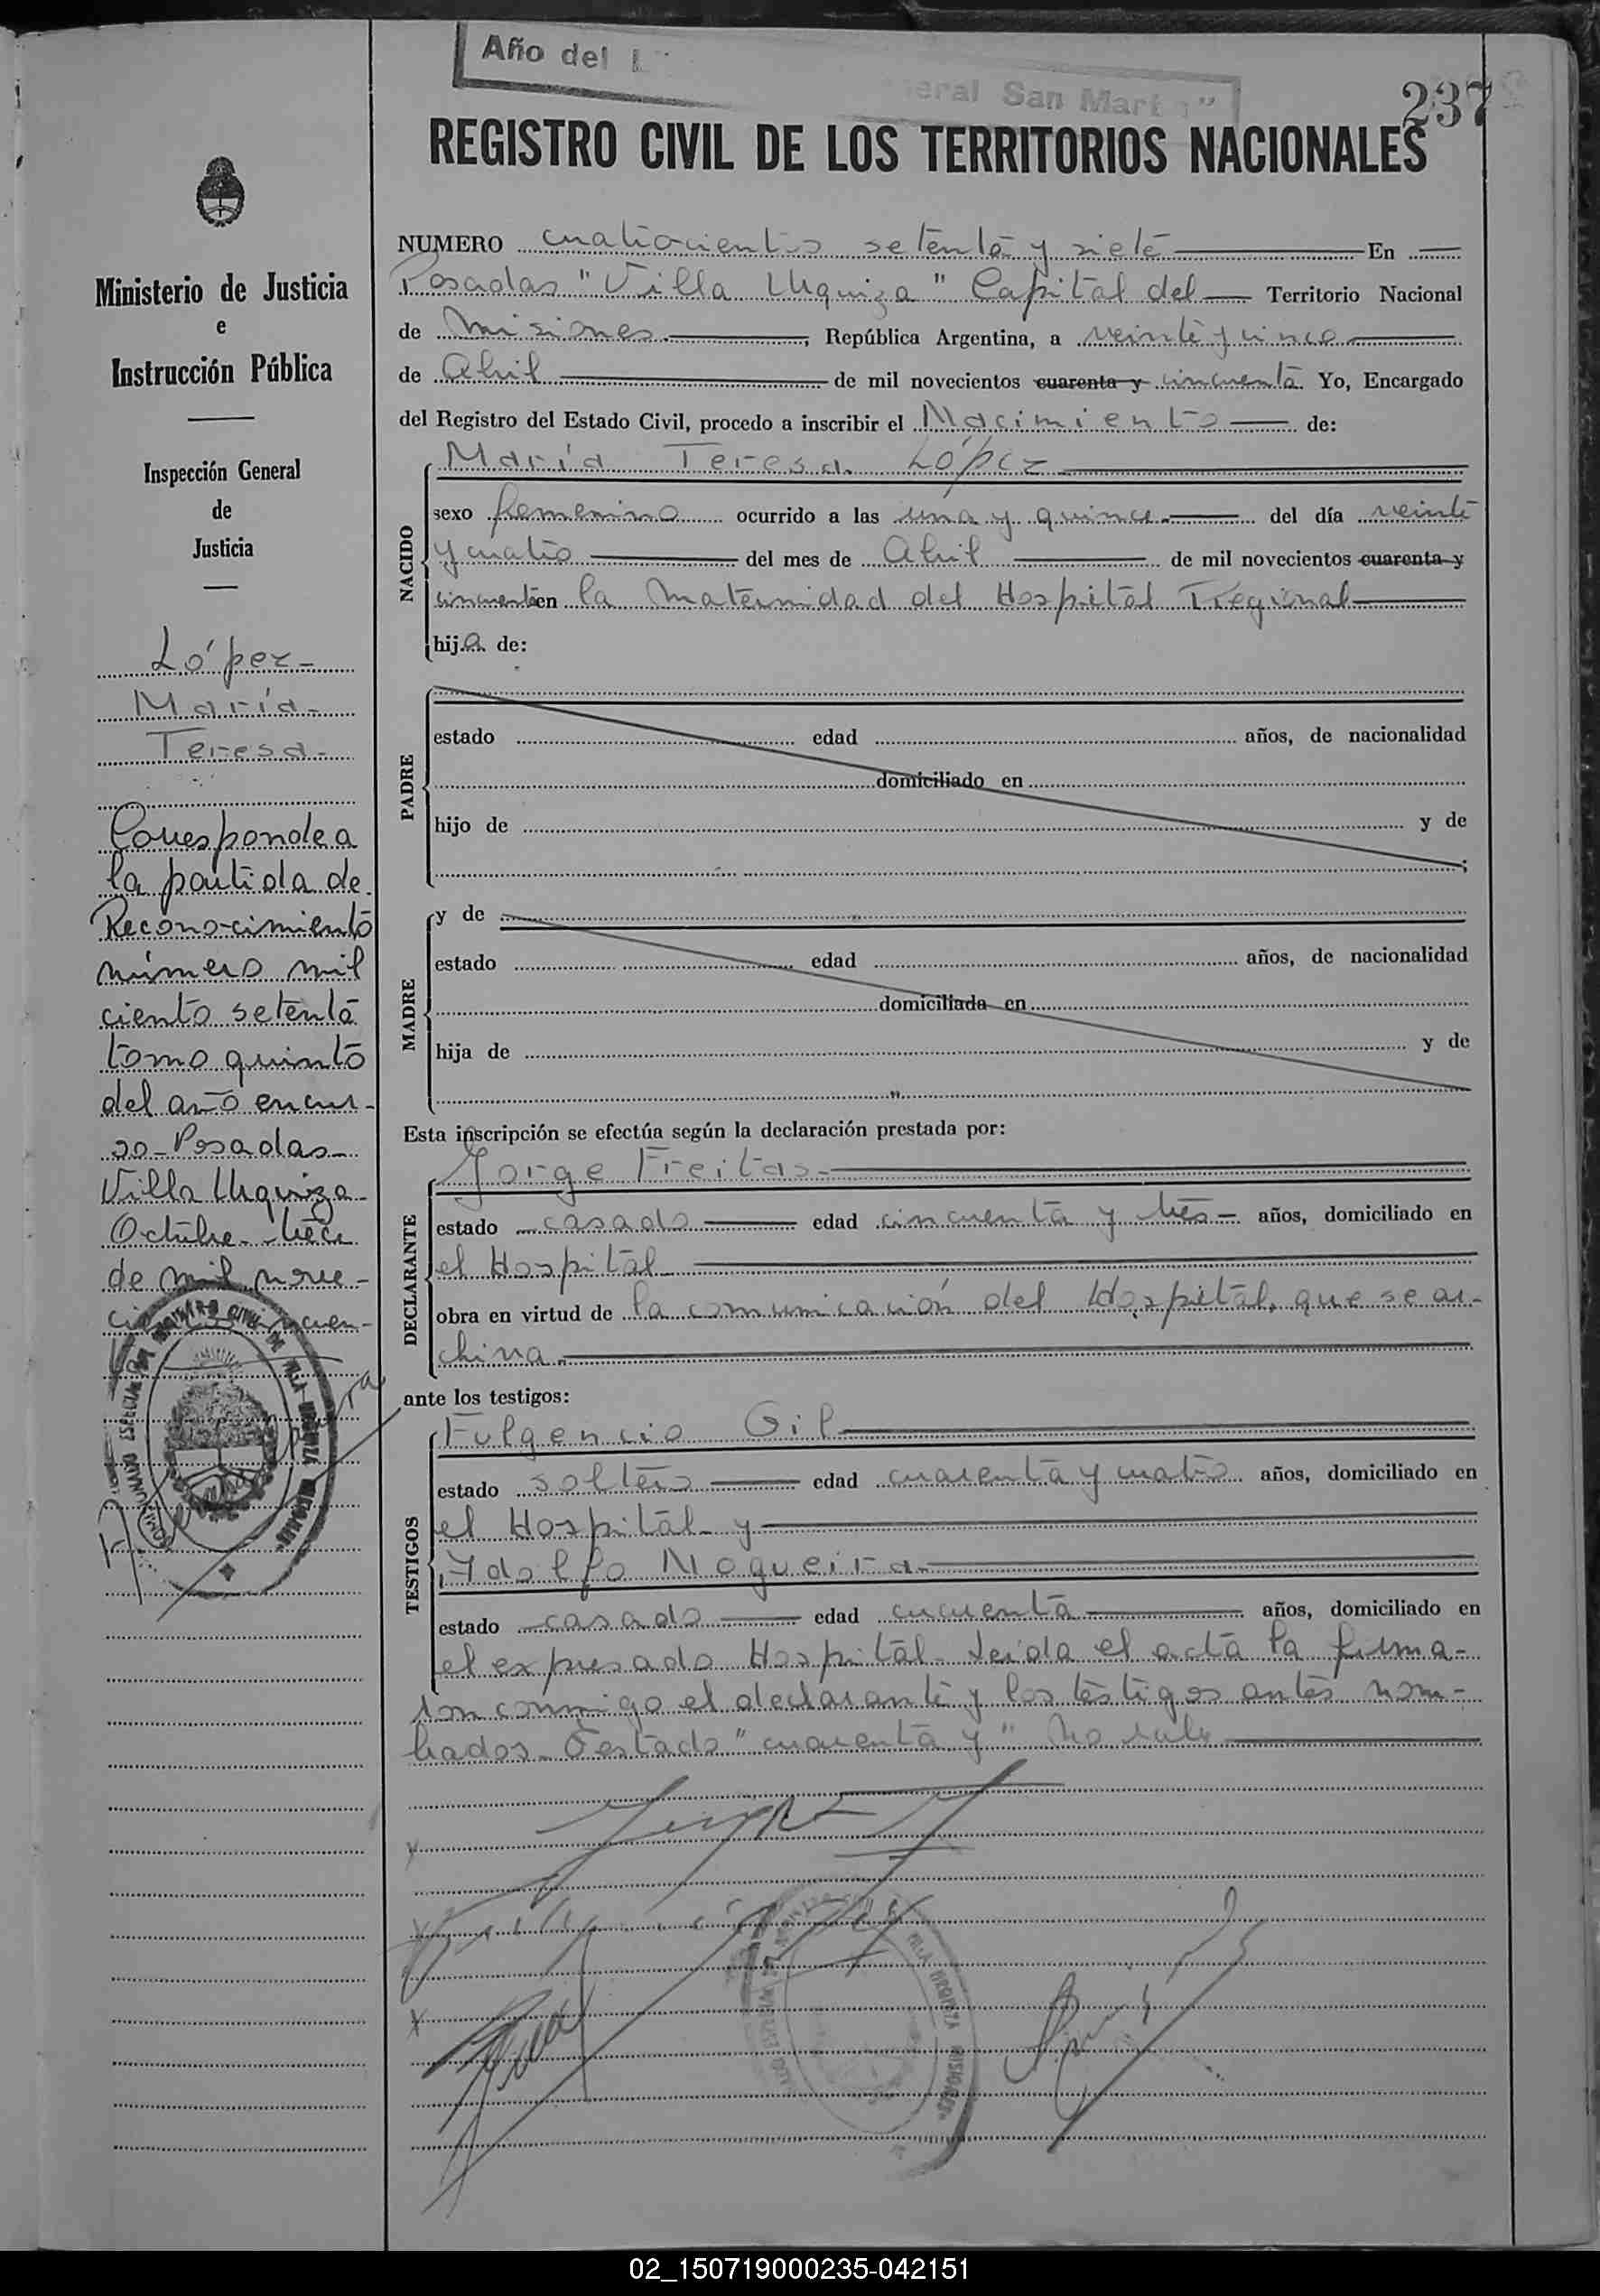 Año del L
eral San Martín"
237
REGISTRO CIVIL DE LOS TERRITORIOS NACIONALES
Ministerio de Justicia
e
Instrucción Pública
Inspección General
de
Justicia
López-
María-
Teresa-
Corresponde a
la partida de
Reconocimiento
número mil
ciento setenta
tomo quinto
del año en cur-
so- Posadas-
Villa Urquiza-
Octubre- trece
de mil nove-
cincuen-
NUMERO cuatrocientos setenta y siete En
Posadas "Villa Urquiza" Capital del Territorio Nacional
de Misiones, República Argentina, a veinte y cinco
de Abril de mil novecientos cuarenta y cincuenta Yo, Encargado
del Registro del Estado Civil, procedo a inscribir el Nacimiento de:
NACIDO
María Teresa López
sexo femenino ocurrido a las una y quince del día veinte
y cuatro del mes de Abril de mil novecientos cuarenta y
cincuenta en la Maternidad del Hospital Regional
hija de:
PADRE
estado edad años, de nacionalidad
domiciliado en
hijo de y de
;
MADRE
y de
estado edad años, de nacionalidad
domiciliada en
hija de y de
Esta inscripción se efectúa según la declaración prestada por:
DECLARANTE
Jorge Freitas-
estado casado edad cincuenta y tres- años, domiciliado en
el Hospital
obra en virtud de la comunicación del Hospital, que se ar-
chiva.
ante los testigos:
TESTIGOS
Fulgencio Gil
estado soltero edad cuarenta y cuatro años, domiciliado en
el Hospital- y
Adolfo Nogueira-
estado casado edad cucuenta años, domiciliado en
el expresado Hospital- Leida el acta la firma-
ron conmigo el declarante y los testigos antes nom-
brados- Testado "cuarenta y" No vale
VILLA URQUIZA MISIONES
02_150719000235-042151